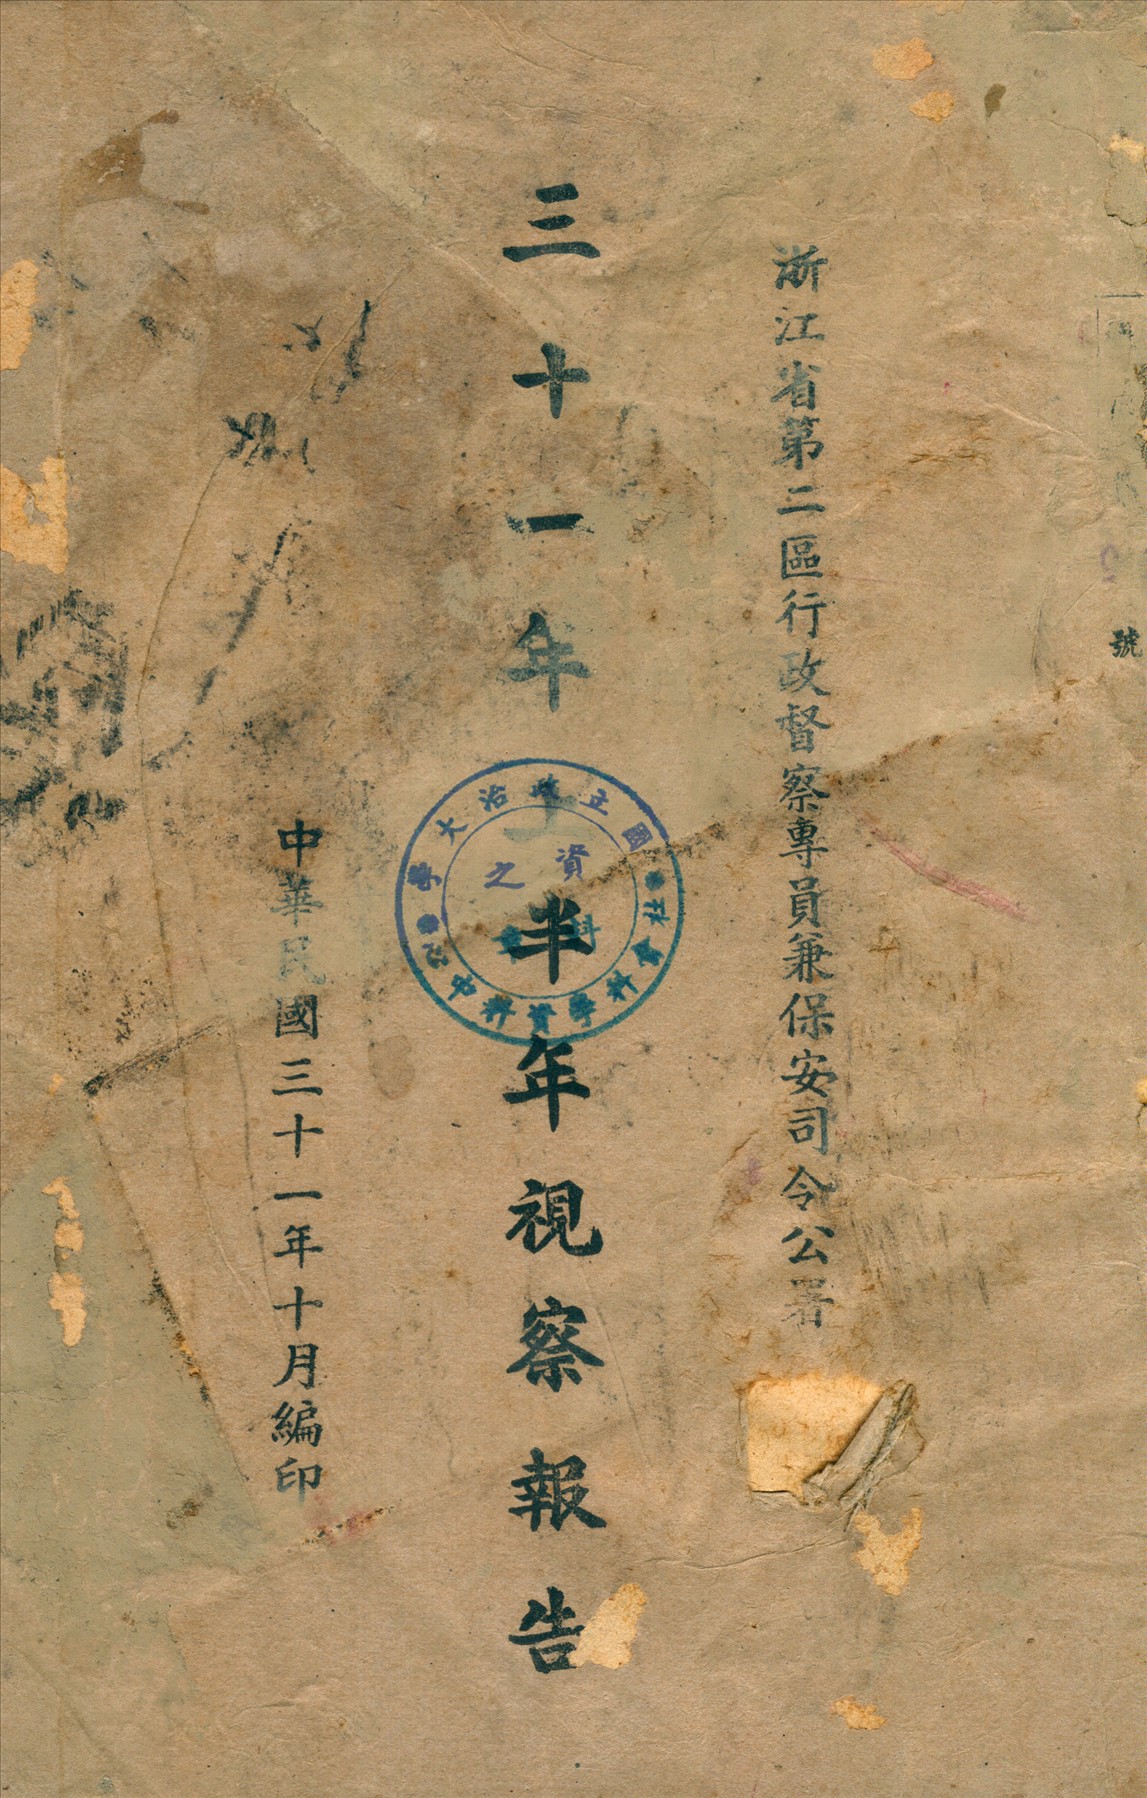 號
浙江省第二區行政督察專員兼保安司令公署
三十一年上半年視察報告
國立政治大學
社會科學資料中心
資料
之章
中華民國三十一年十月編印